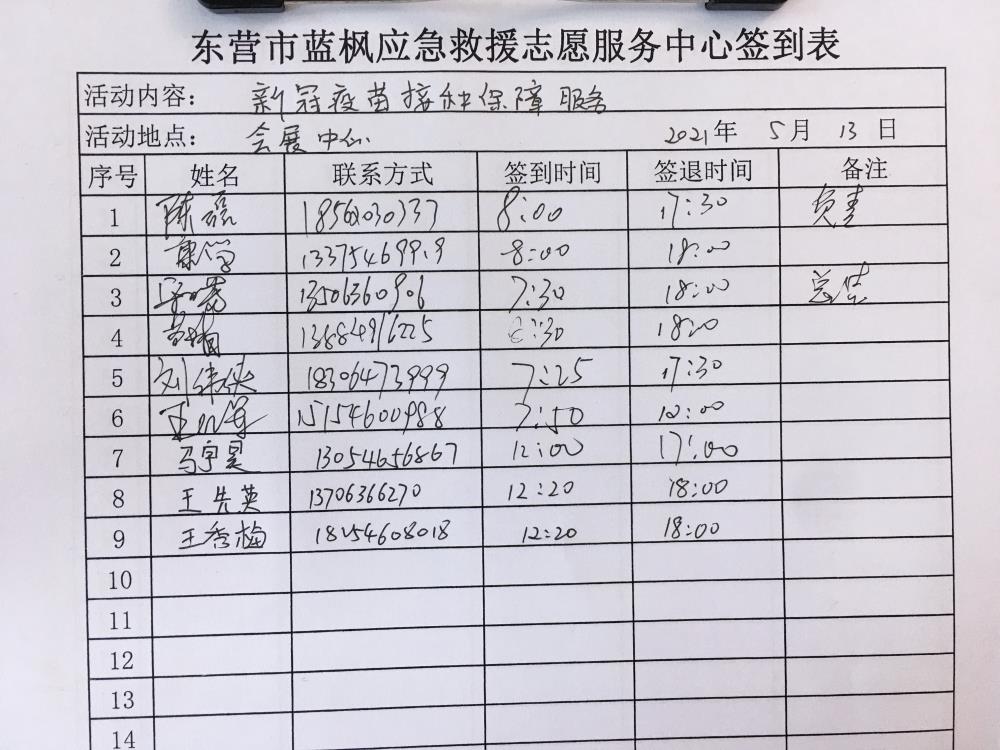 东营市蓝枫应急救援志愿服务中心签到表
活动内容: 新冠疫苗接种保障服务
活动地点: 会展中心 2021年 5月 13日
序号 姓名 联系方式 签到时间 签退时间 备注
1 陈磊 8:00 17:30 负责
2 13375469919 8:00 18:00
3 13506360906 7:30 18:00 总结
4 13884916225 18:20
5 刘佳侠 18306473999 7:25 17:30
6 15154600988 7:50 12:00
7 马宇昊 13054656867 12:00 17:00
8 王先英 13706366270 12:20 18:00
9 王香梅 18254608018 12:20 18:00
10
11
12
13
14